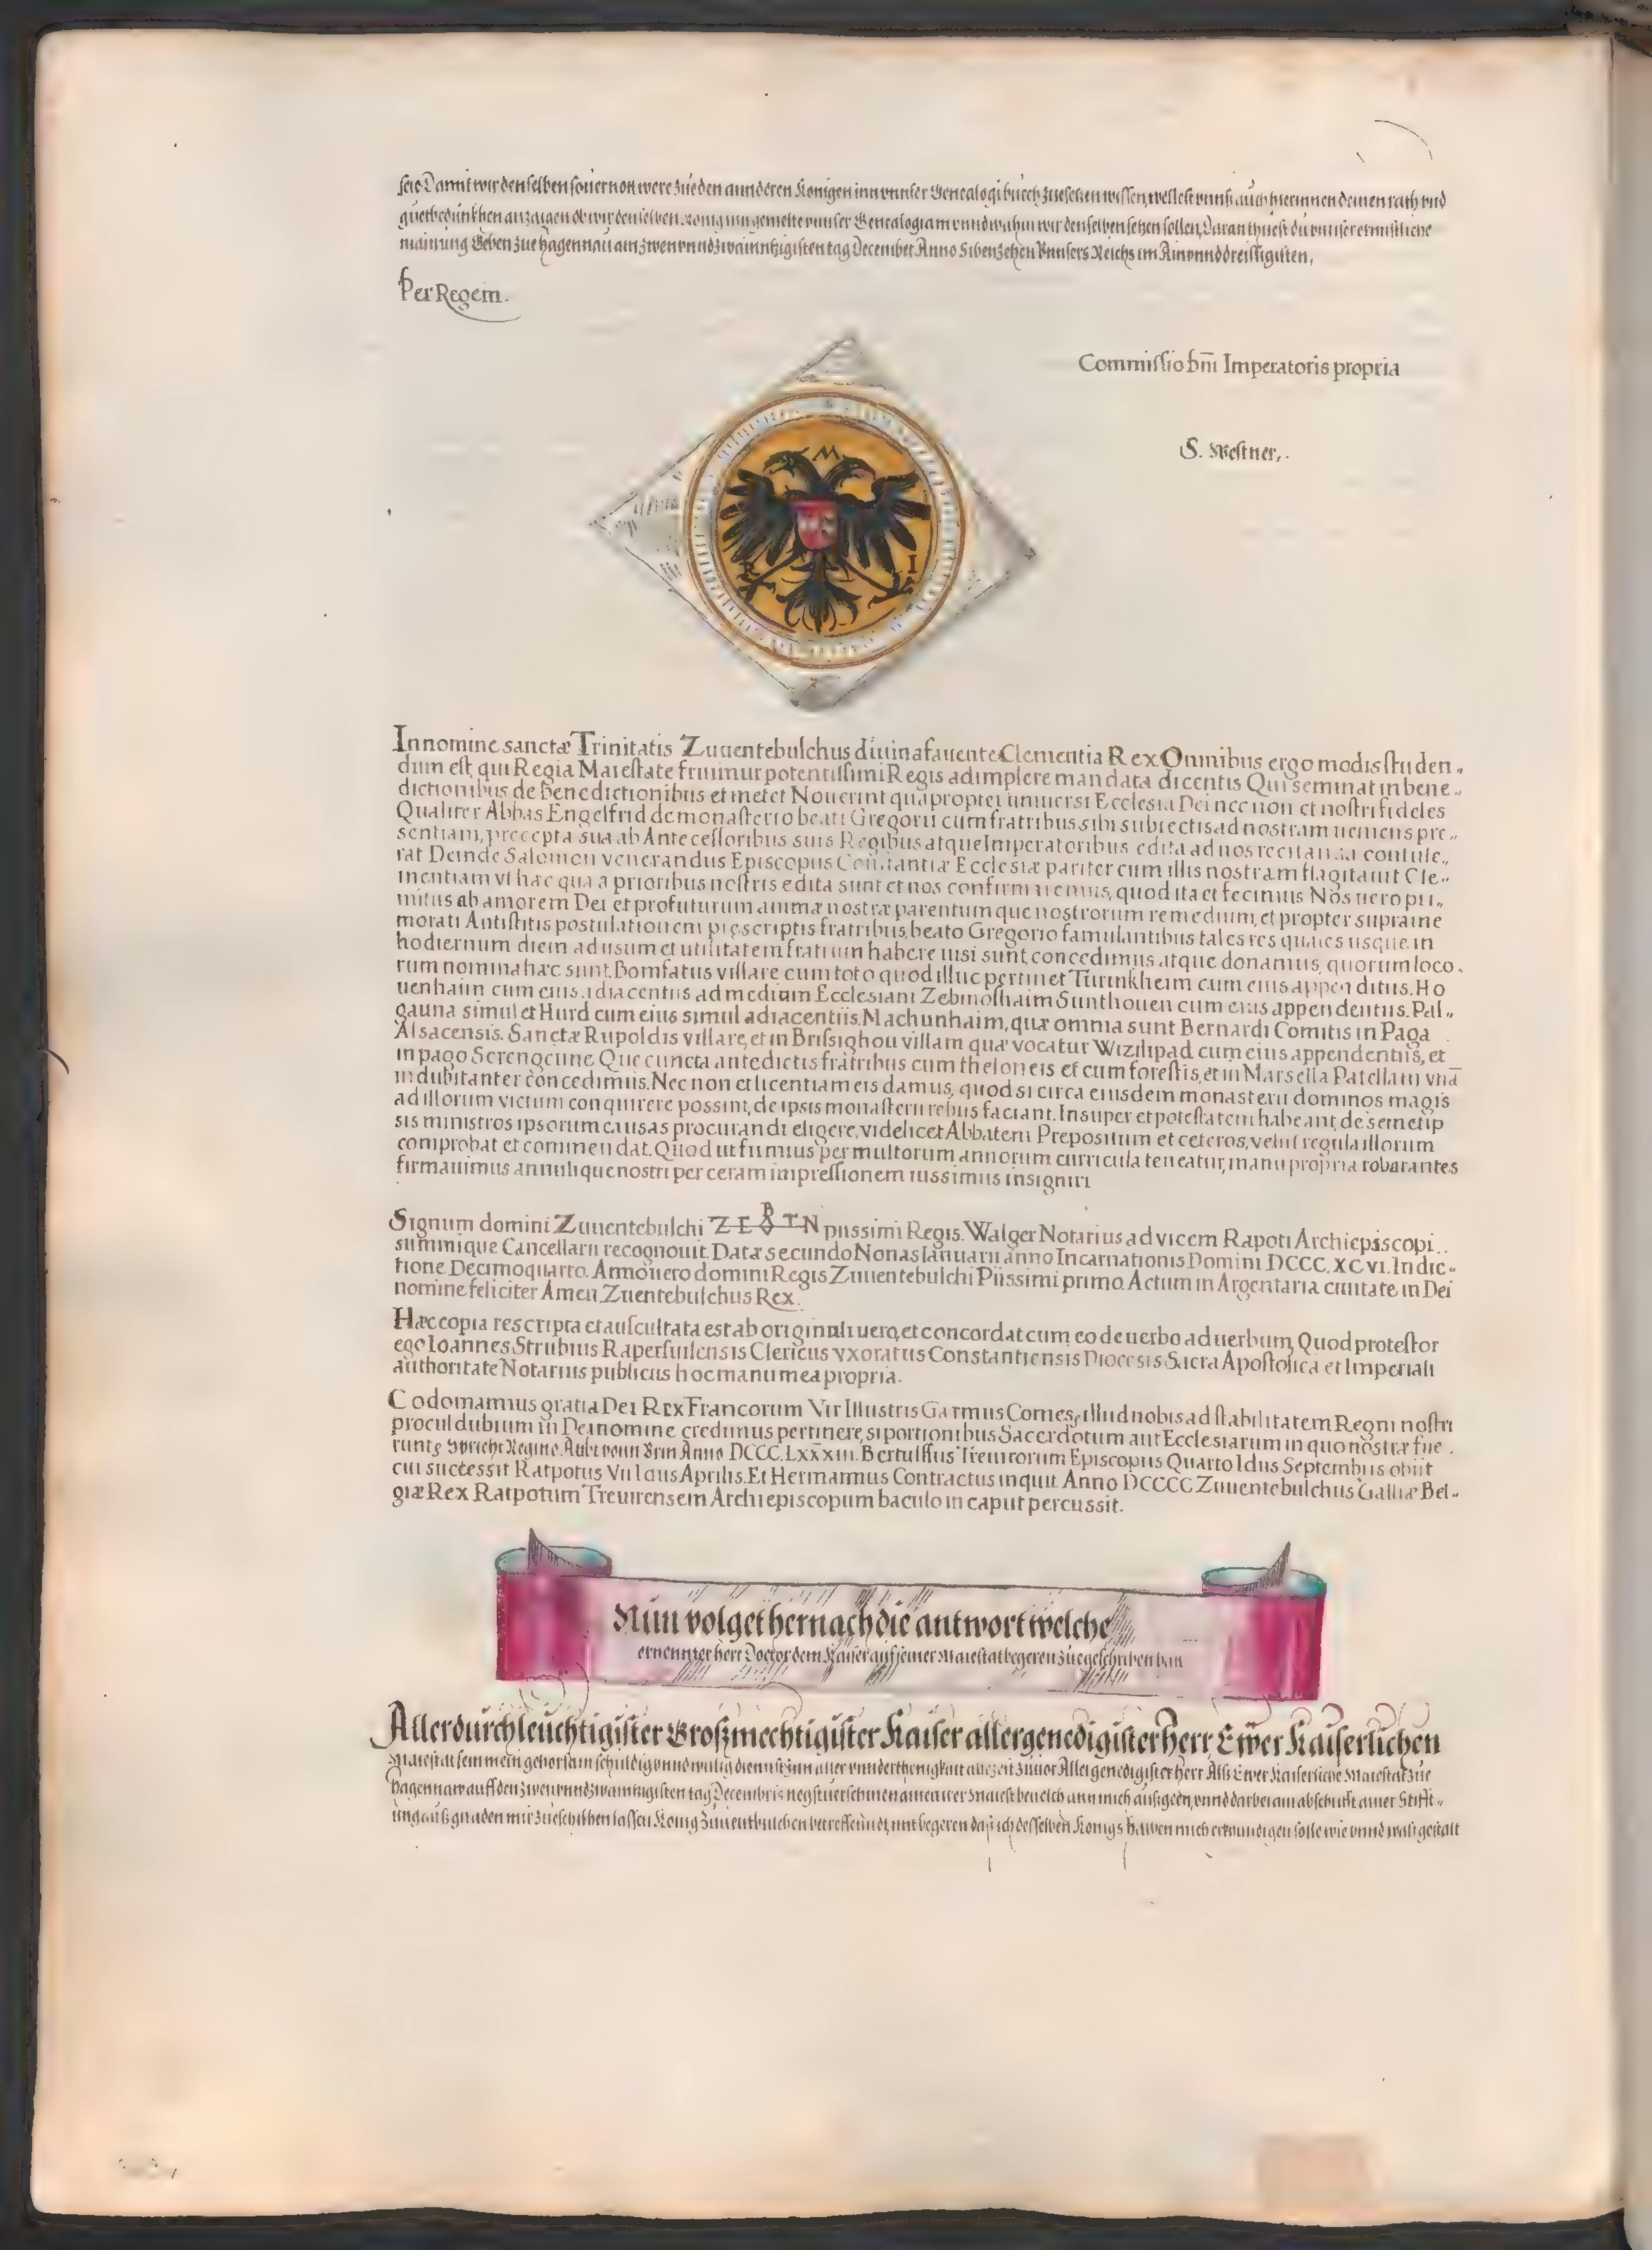 seie Damit wir denselben souer non were zue den annderen Konigen inn vnnser Genealogi buech zuesetzen wissen, wellest vnnß auch hierinnen deinen rath vnd
guetbedunkhen anzaigen ob wir denselben Konig inn gemelte vnnser Genealogiam vnnd wahin wir denselben setzen sollen, Daran thuest du vnnser ernnstliche
mainung Geben zue Hagennau am zwenvnndzwainntzigisten tag December Anno Sibenzehen Vnnsers Reichs im Ainvnnddreissigisten,
Per Regem.
Commissio dnī Imperatoris propria
S. Westner,.
M
R I
In nomine sanctæ Trinitatis Zuuentebulchus diuina fauente Clementia Rex Omnibus ergo modis studen„
dum est, qui Regia Maiestate fruimur potentissimi Regis adimplere mandata dicentis Qui seminat in bene„
dictionibus de benedictionibus et metet Nouerint quapropter uniuersi Ecclesia Dei nec non et nostri fideles
Qualiter Abbas Engelfrid de monasterio beati Gregorii cum fratribus sibi subiectis ad nostram ueniens pre„
sentiam, precepta sua ab Antecessoribus suis Regibus atque Imperatoribus edita ad nos recitanda contule„
rat Deinde Salomon venerandus Episcopus Constantiæ Ecclesiæ pariter cum illis nostram flagitauit Cle„
mentiam vt hæc qua a prioribus nostris edita sunt et nos confirmaremus, quod ita et fecimus Nos uero pri„
mitus ab amorem Dei et profuturum animæ nostræ parentumque nostrorum remedium, et propter supra me
morati Antistitis postulationem prescriptis fratribus, beato Gregorio famulantibus tales res quales usque in
hodiernum diem ad usum et utilitatem fratrum habere uisi sunt, concedimus atque donamus, quorum loco„
rum nomina hæc sunt. Bomfatus villare cum toto quod illuc pertinet Turinkheim cum eius appenditus. Ho
uenhaim cum eius adiacentiis ad medium Ecclesiam Zebinoshaim Sunthouen cum eius appendentiis. Pal„
gauna simul et Hurd cum eius simul adiacentiis. Machunhaim, quæ omnia sunt Bernardi Comitis in Paga
Alsacensis. Sanctæ Rupoldis villare, et in Brissighou villam quæ vocatur Wizilipad cum eius appendentiis, et
in pago Serengeune Que cuncta antedictis fratribus cum theloneis et cum forestis, et in Marsella Patellam vnā
indubitanter concedimus. Nec non et licentiam eis damus, quod si circa eiusdem monasterii dominos magis
ad illorum victum conquirere possint, de ipsis monasterii rebus faciant. Insuper et potestatem habeant, de semetip
sis ministros ipsorum causas procurandi eligere, videlicet Abbatem Prepositum et ceteros, velut regula illorum
comprobat et commendat. Quod ut firmius per multorum annorum curricula teneatur, manu propria roborantes
firmauimus annulique nostri per ceram impressionem iussimus insigniri
Signum domini Zuuentebulchi Z E B T N piissimi Regis. Walger Notarius ad vicem Rapoti Archiepiscopi
summique Cancellarii recognouit. Datæ secundo Nonas Ianuarii anno Incarnationis Domini DCCC. XCVI. Indic„
tione Decimoquarto. Anno uero domini Regis Zuuentebulchi Piissimi primo. Actum in Argentaria ciuitate in Dei
nomine feliciter Amen Zuentebulchus Rex.
Hæc copia rescripta et auscultata est ab originali uero, et concordat cum eo de uerbo ad uerbum, Quod protestor
ego Ioannes Strubius Raperswilensis Clericus vxoratus Constantiensis Diocesis Sacra Apostolica et Imperiali
authoritate Notarius publicus hoc manu mea propria.
Codomamius gratia Dei Rex Francorum Vir Illustris Garmus Comes, illud nobis ad stabilitatem Regni nostri
procul dubium in Dei nomine credimus pertinere, si portionibus Sacerdotum aut Ecclesiarum in quo nostræ fue
runt Spricht Regino Aubt vonn Brin Anno DCCC. LXXXIII. Bertulffus Treuirorum Episcopus Quarto Idus Septembris obiit
cui successit Ratpotus VII Idus Aprilis. Et Hermannus Contractus inquit Anno DCCCC Zuuentebulchus Galliæ Bel„
giæ Rex Ratpotum Treuirensem Archiepiscopum baculo in caput percussit.
Nun volget hernach die antwort welche
ernennter herr Doctor dem Kaiser auf seiner Maiestat begeren zuegeschriben han
Allerdurchleuchtigister Großmechtigister Kaiser allergenedigister Herr, Ewer Kaiserlichen
Maiestat sein mein gehorsam schuldig vnnd willig diennst inn aller vnnderthenigkait allezeit zuuor Allergenedigister Herr Alß Ewer Kaiserliche Maiestat zue
Hagennaw auff den zwenvnndzwaintzigisten tag Decembris negst uerschinen ainen ewer Maiest beuelch ann mich außgeen, vnnd darbei ain abschrifft ainer Stifft„
ung auß gnaden mir zueschikhen lassen Konig Zuuentbulchen betreffenndt, mit begeren daß ich desselben Konigs halben mich erkundigen solle wie vnnd waß gestalt